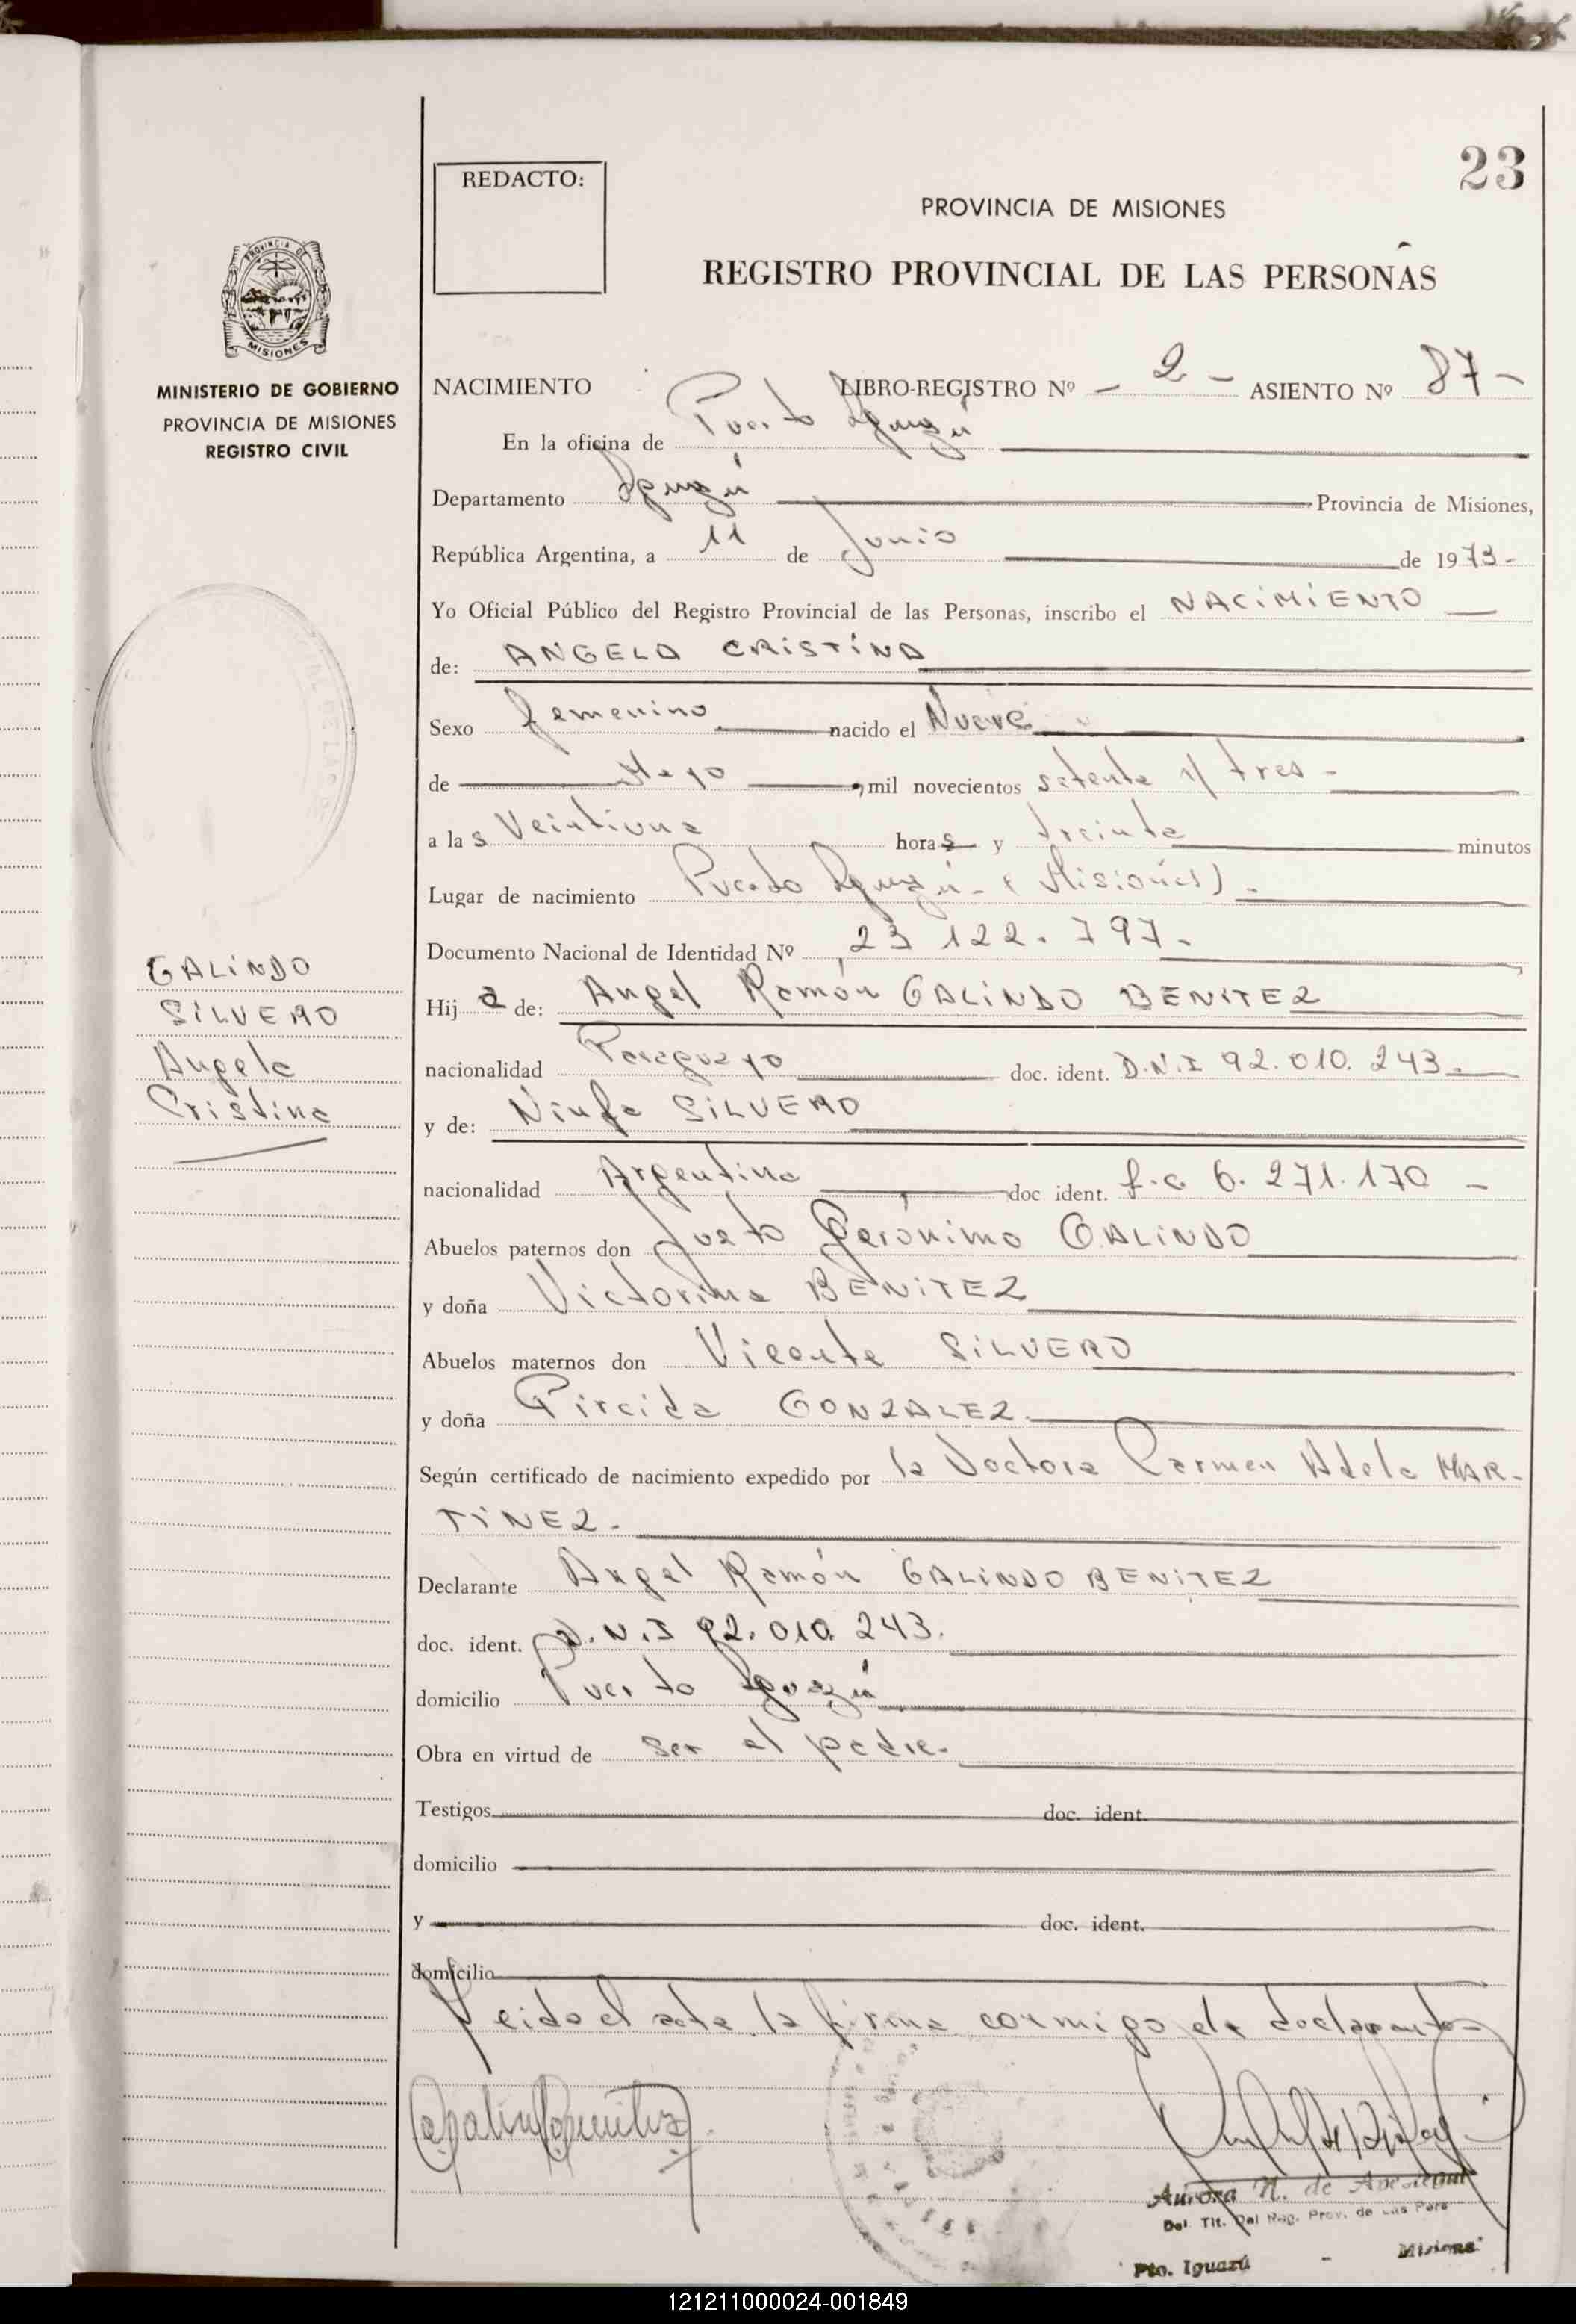 23
REDACTO:
PROVINCIA DE MISIONES
REGISTRO PROVINCIAL DE LAS PERSONAS
PROVINCIA DE
MISIONES
MINISTERIO DE GOBIERNO
PROVINCIA DE MISIONES
REGISTRO CIVIL
NACIMIENTO LIBRO-REGISTRO Nº - 2 - ASIENTO Nº 87 -
En la oficina de Puerto Iguazú
Departamento Iguazú Provincia de Misiones,
República Argentina, a 11 de Junio de 1973-
Yo Oficial Público del Registro Provincial de las Personas, inscribo el NACIMIENTO
de: ANGELA CRISTINA
Sexo femenino nacido el Nueve
de Mayo mil novecientos setenta y tres -
a las Veintiuna horas y treinta minutos
Lugar de nacimiento Puerto Iguazú - (Misiones) -
Documento Nacional de Identidad Nº 23 122. 797-
GALINDO
SILVERO
Angela
Cristina
Hija de: Angel Ramón GALINDO BENITEZ
nacionalidad Paraguayo doc. ident. D.N.I 92.010.243-
y de: Ninfa SILVERO
nacionalidad Argentina doc ident. f.c 6.271.170 -
Abuelos paternos don Justo Gerónimo GALINDO
y doña Victorina BENITEZ
Abuelos maternos don Vicente SILVERO
y doña GONZALEZ.
Según certificado de nacimiento expedido por la Doctora Carmen Adela MAR-
TINEZ.
Declarante Angel Ramón GALINDO BENITEZ
doc. ident. D.N.I 92.010.243.
domicilio Puerto Iguazú
Obra en virtud de ser el padre.
Testigos doc. ident.
domicilio
y doc. ident.
domicilio
Leida el acta la firma conmigo el declarante
Aurora N. de
Del. Tit. Del Reg. Prov. de Las Pers
Pto. Iguazú - Misiones
121211000024-001849